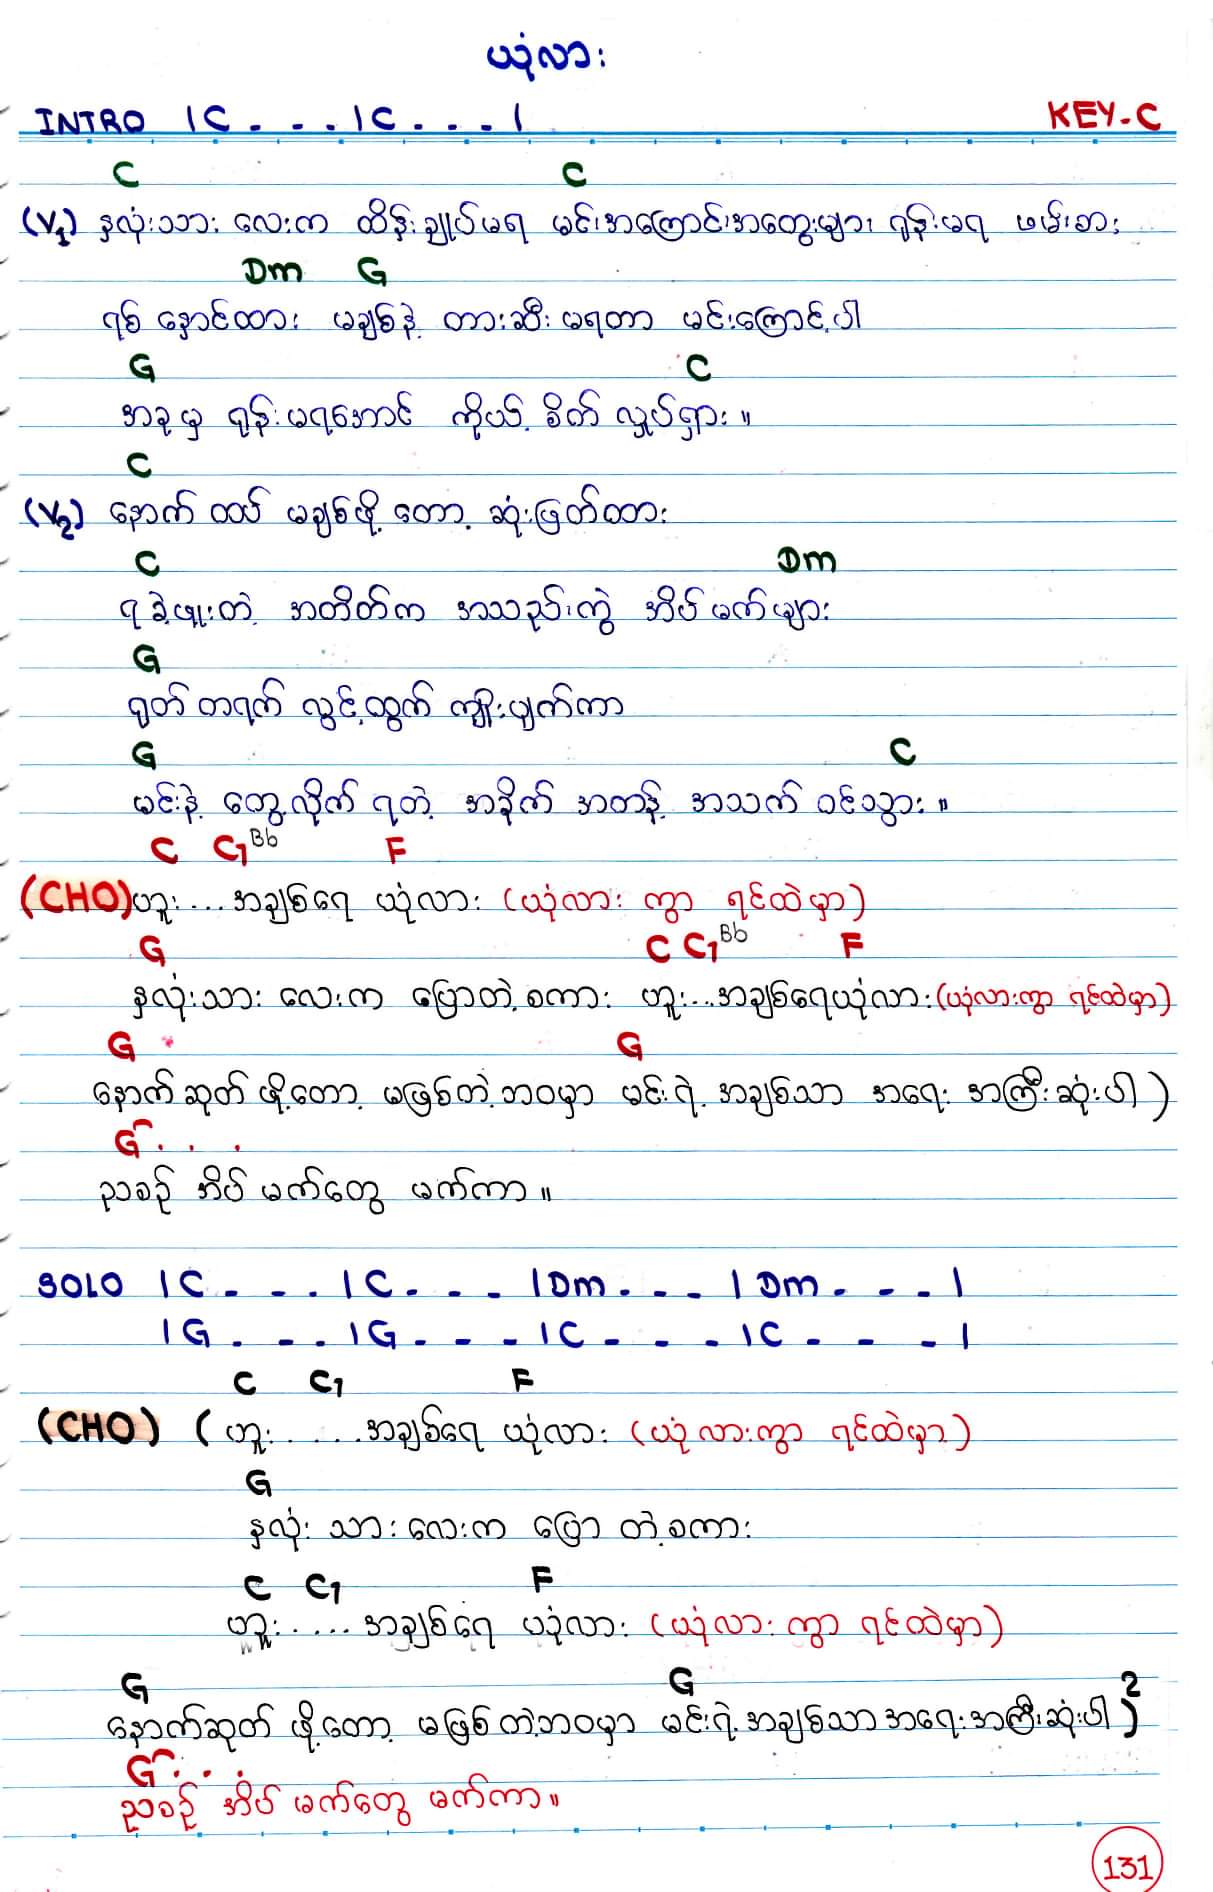 ယုံလား
INTRO | C - - - | C - - - | KEY-C
C C
(V1) နှလုံးသား လေးက ထိန်းချုပ်မရ မင်းအကြောင်းအတွေးများ ရုန်းမရ ဖမ်းစား
Dm G
ရစ် နှောင်ထား မချစ်နဲ့ တားဆီး မရတာ မင်းကြောင့်ပါ
G C
အခုမှ ရုန်းမရအောင် ကိုယ့် စိတ် လှုပ်ရှား ။
C
(V2) နောက် ထပ် မချစ်ဖို့ တော့ ဆုံးဖြတ်ထား
C Dm
ရခဲ့ဖူးတဲ့ အတိတ်က အသည်းကွဲ အိပ်မက်များ
G
ရုတ် တရက် လွင့်ထွက် ကျိုးပျက်ကာ
G C
မင်းနဲ့ တွေ့လိုက် ရတဲ့ အခိုက် အတန့် အသက် ဝင်သွား ။
C C7 Bb F
(CHO) ဟူး... အချစ်ရေ ယုံလား (ယုံလား ကွာ ရင်ထဲမှာ)
G C C7 Bb F
နှလုံးသား လေးက ပြောတဲ့ စကား ဟူး...အချစ်ရေယုံလား (ယုံလားကွာ ရင်ထဲမှာ)
G G
နောက်ဆုတ် ဖို့တော့ မဖြစ်တဲ့ဘဝမှာ မင်းရဲ့ အချစ်သာ အရေး အကြီးဆုံးပါ )
G . . .
ညစဉ် အိပ်မက်တွေ မက်ကာ ။
SOLO | C - - - | C - - - | Dm - - - | Dm - - - |
| G - - - | G - - - | C - - - | C - - - |
C C7 F
(CHO) ( ဟူး .....အချစ်ရေ ယုံလား (ယုံလားကွာ ရင်ထဲမှာ)
G
နှလုံး သား လေးက ပြော တဲ့စကား
C C7 F
ဟူး..... အချစ်ရေ ယုံလား (ယုံလား ကွာ ရင်ထဲမှာ)
G G
နောက်ဆုတ် ဖို့တော့ မဖြစ်တဲ့ဘဝမှာ မင်းရဲ့ အချစ်သာ အရေးအကြီးဆုံးပါ )2
G . . .
ညစဉ် အိပ်မက်တွေ မက်ကာ ။
131